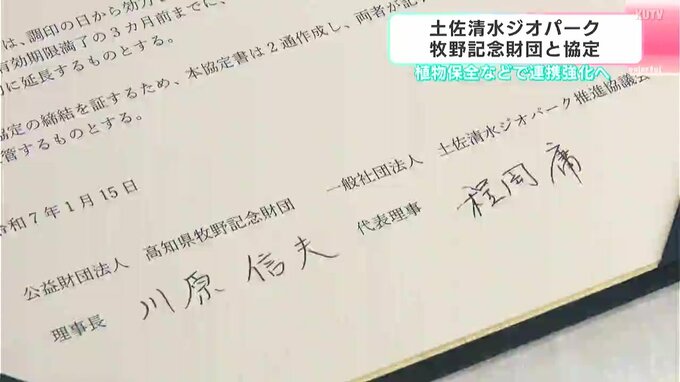 KUTV
土佐清水ジオパーク
牧野記念財団と協定
植物保全などで連携強化へ
は、調印の日から効力
有効期限満了の3カ月前までに、
に延長するものとする。
協定の締結を証するため、本協定書は2通作成し、両者が記
管するものとする。
令和7年1月15日
公益財団法人 高知県牧野記念財団
理事長 川原 信夫
一般社団法人 土佐清水ジオパーク推進協議会
代表理事 程岡 庸